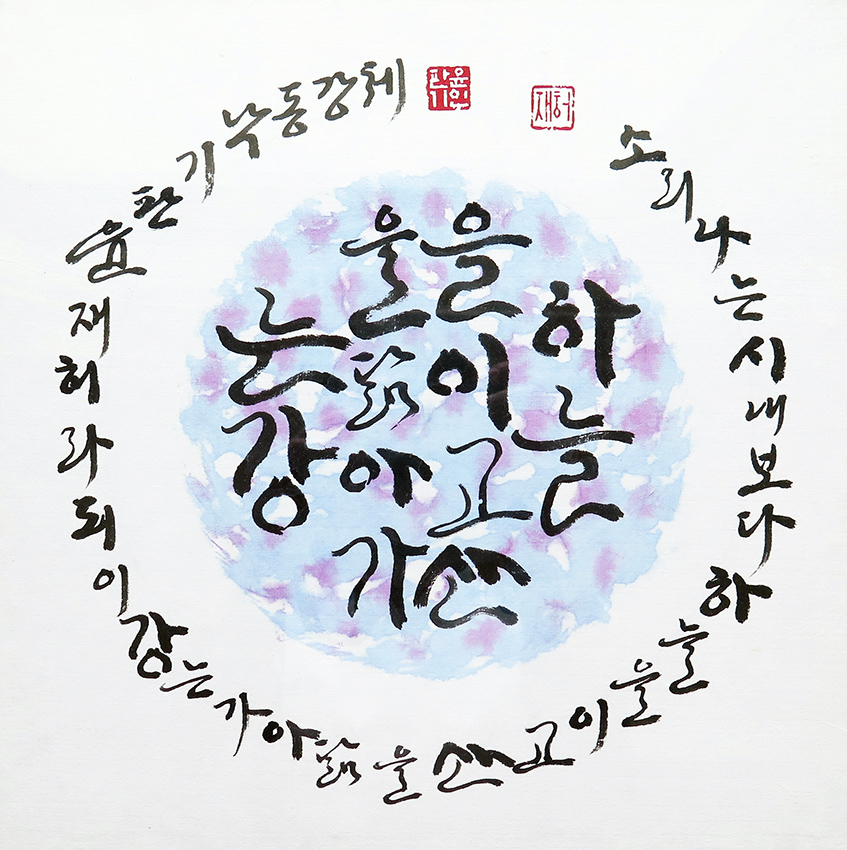 소리나는시내보다하늘을이고산을닮아가는강이되라허재윤판기낙동강체
하늘
을이고산
을닮아가
는강
허재
윤인판기